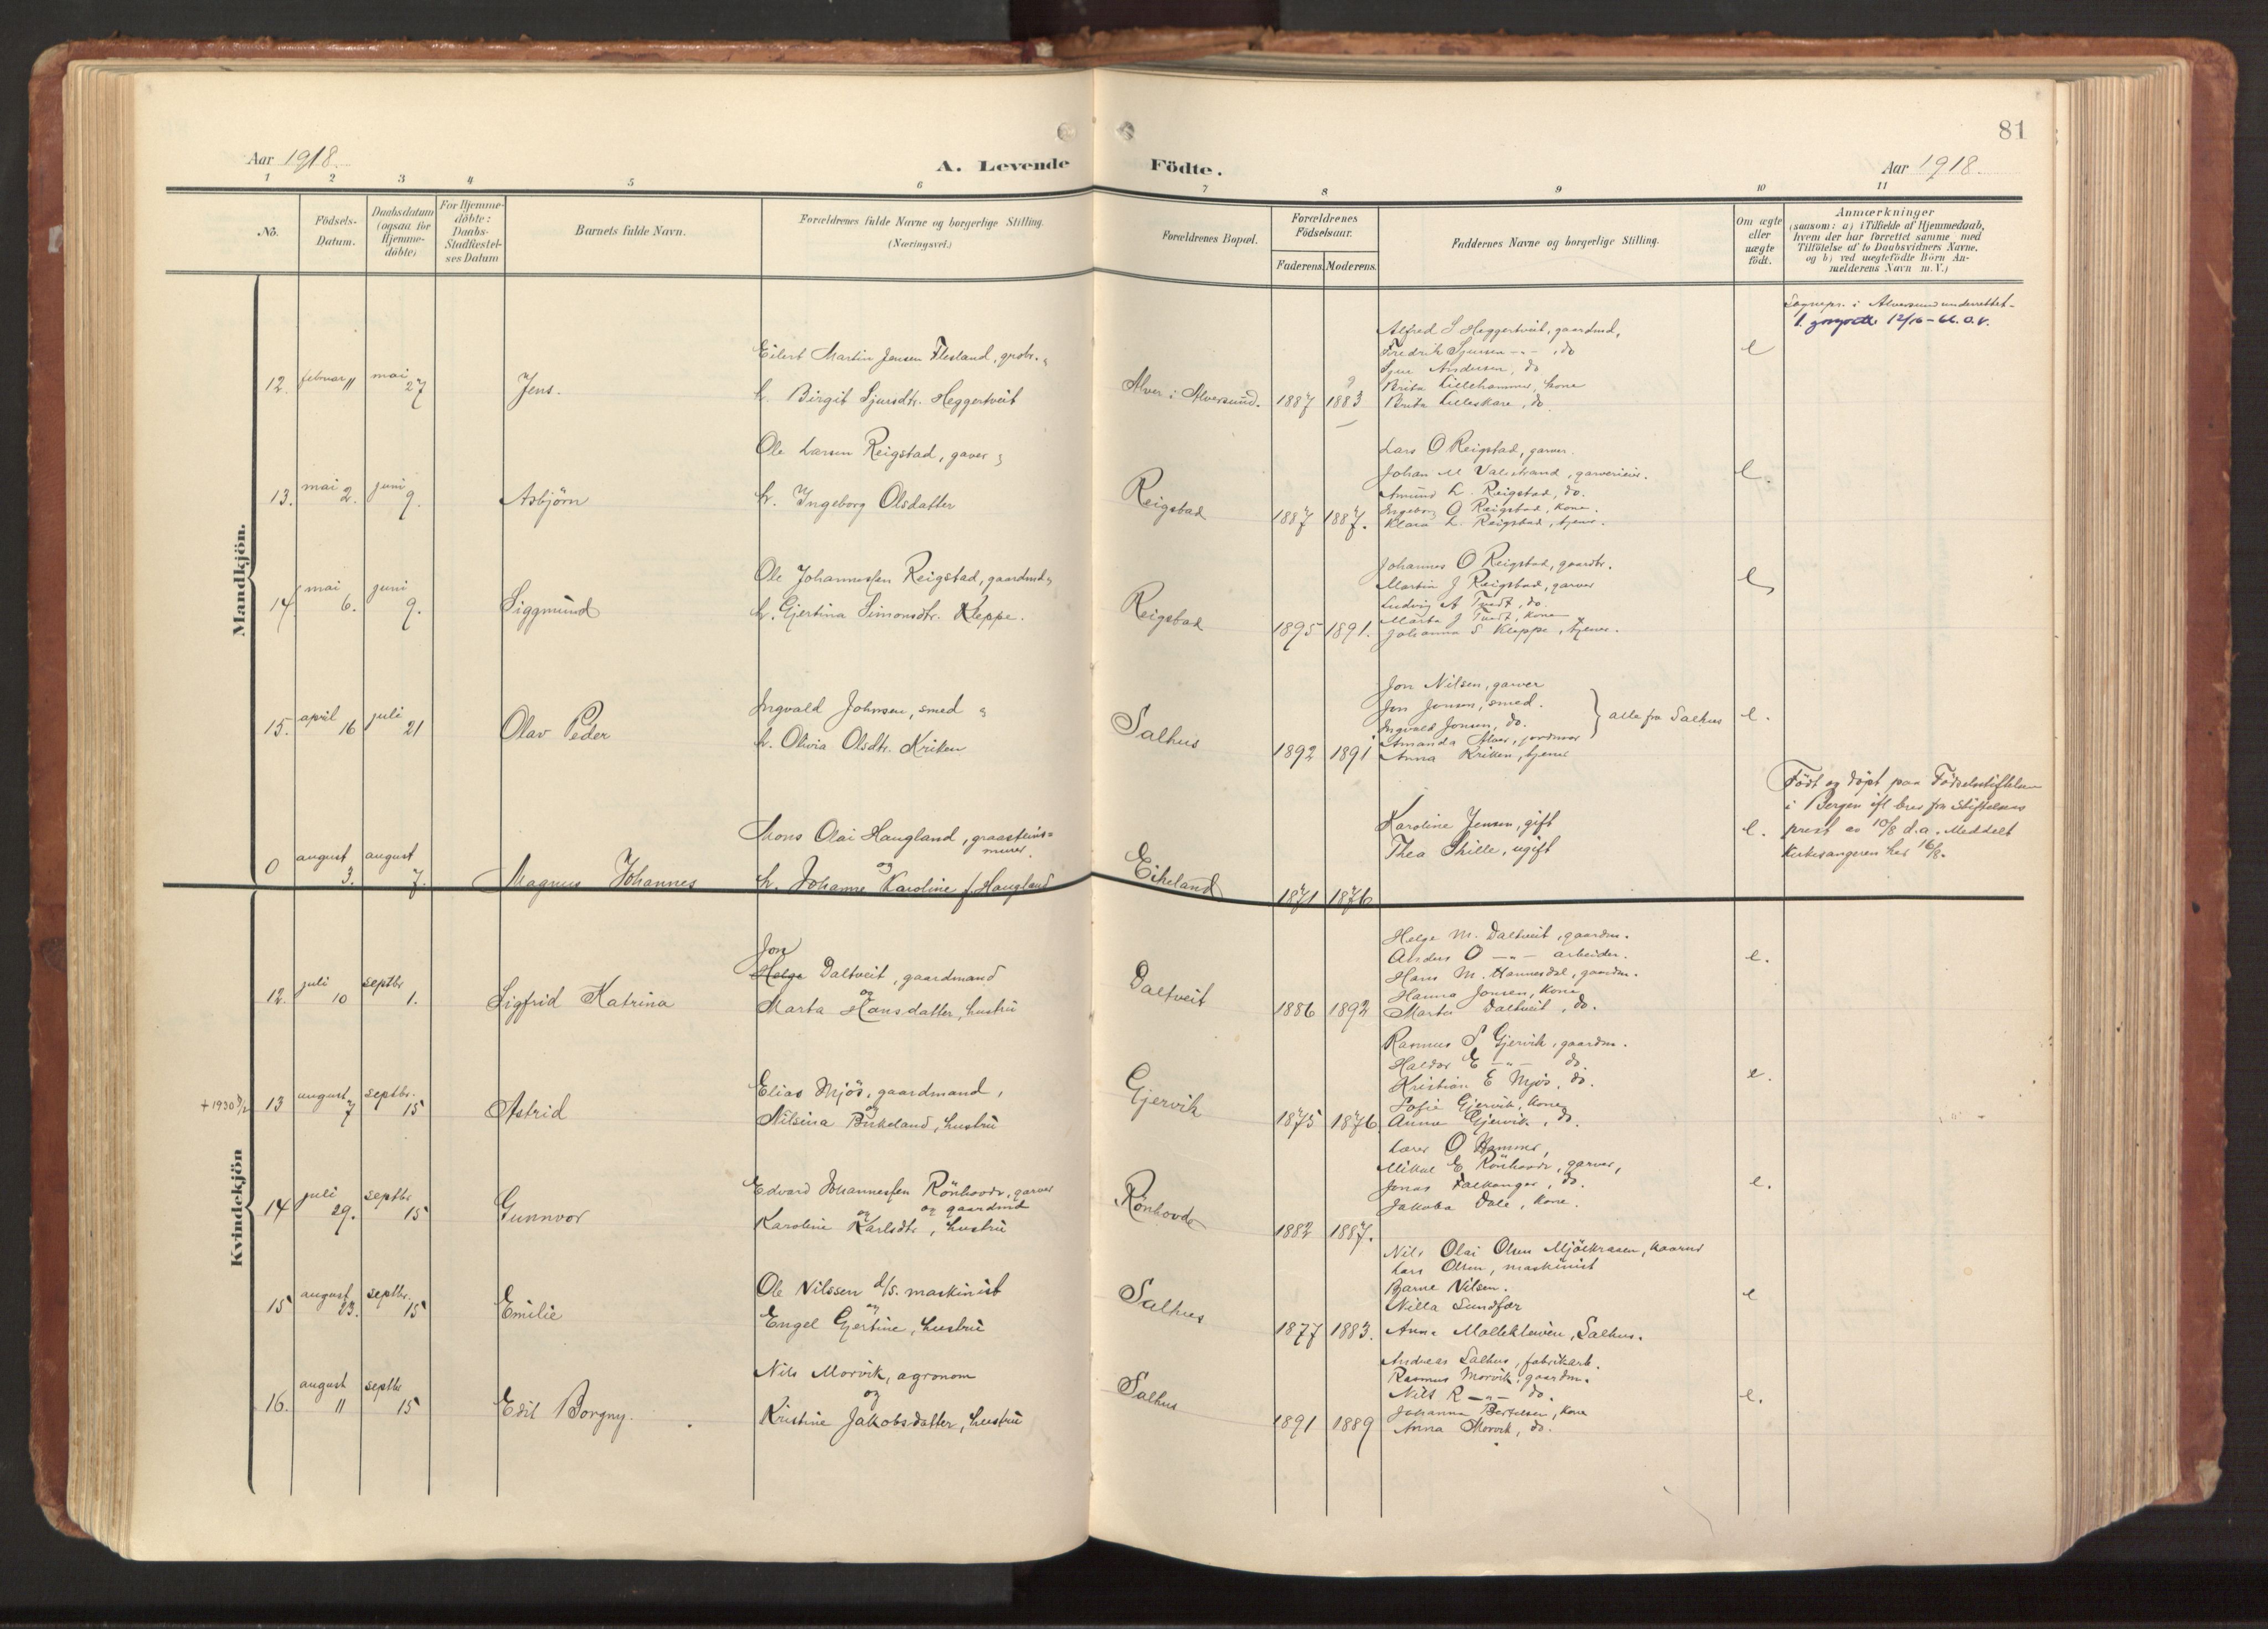 81
Aar 1918.
A. Levende Födte.
Aar 1918.
1 2 3 4 5 6 7 8 9 10 11
No.
Födsels-
Datum.
Daabsdatum
(ogsaa for
Hjemme-
döbte)
For Hjemme-
döbte:
Daabs-
Stadfæstel-
ses Datum
Barnets fulde Navn.
Forældrenes fulde Navne og borgerlige Stilling.
(Næringsvei.)
Forældrenes Bopæl.
Forældrenes
Födselsaar.
Faderens. Moderens.
Faddernes Navne og borgerlige Stilling.
Om ægte
eller
uægte
födt.
Anmærkninger
(saasom: a) i Tilfælde af Hjemmedaab,
hvem der har forrettet samme med
Tilföielse af to Daabsvidners Navne,
og b) ved uægtefödte Börn An-
melderens Navn m. V.)
Mandkjön.
12. februar 11 mai 27
Jens.
Eilert Martin Jensen Flesland, grobr. og
h. Birgit Sjursdtr. Heggertveit
Alver i Alversund.
1887 1883
Alfred S Heggertveit, gaardmd,
Fredrik Sjursen -"- , do
Sjur Andersen, do
Brita Lillehammer, kone
Brita Lilleskare, do.
e
Sognepr. i Alversund underrettet -
12/10-66. O.V.
13. mai 2. juni 9.
Asbjörn
Ole Larsen Reigstad, gaver og
h. Ingeborg Olsdatter
Reigstad
1887 1887.
Lars O Reigstad, garver.
Johan M Valestrand, garverieier.
Amund L. Reigstad, do.
Ingeborg O Reigstad, kone.
Klara L. Reigstad, tjener.
e.
14. mai 6. juni 9.
Siggmund
Ole Johannessen Reigstad, gaardmd og
h. Gjertina Simonsdtr. Kleppe.
Reigstad
1895 1891.
Johannes O Reigstad, gaardbr.
Martin J Reigstad, garver
Ludvig A Tvedt, do.
Marta J Tvedt, kone
Johanna S Kleppe, tjener.
e
15. april 16 juli 21
Olav Peder
Ingvald Johnsen, smed og
h. Olivia Olsdtr. Kriken
Salhus
1892 1891
Jon Nilsen, garver
Jon Jonsen, smed.
Ingvald Jonsen, do.
Amanda Alver, jordmor
Anna Kriken, tjener
alle fra Salhus
e.
0 august 3. august 7.
Magnus Johannes
Mons Olai Haugland, graasteins=
murer.
og
h. Johanne Karoline f. Haugland
Eikeland
1871 1876
Karoline Jensen, gift
Thea Skille, ugift
e.
Födt og döpt paa Födselsstiftelsen
i Bergen ifl brev fra stiftelsens
prest av 10/8 d.a. Meddelt
kirkesangeren her 16/8.
Kvindekjön
12. juli 10 septbr 1.
Sigfrid Katrina
Jon
Helge Daltveit, gaardmand
og
Marta Hansdatter, hustru
Daltveit
1886 1892
Helge M. Daltveit, gaardm.
Anders O -"- arbeider.
Hans M. Hannesdal, gaardm.
Hanna Jonsen, kone
Marta Daltveit, do.
e.
+ 1930 13 august 7 septbr. 15
Astrid
Elias Mjös, gaardmand,
og
Nilsina Birkeland, hustru
Gjervik
1875 1876
Rasmus S Gjervik, gaardm.
Haldor E -"- do.
Kristian E Mjös, do.
Sofie Gjervik, kone
Anna Gjervik, do.
e.
14 juli 29. septbr 15
Gunnvor
Edvard Johannessen Rönhovde, garver
og gaardmd
og
Karoline Karlsdtr, hustru
Rönhovde
1882 1887.
Lærer O Hammer,
Mikal E Rönhovde, garver,
Jonas Falkanger, do.
Jakoba Dale, kone.
e.
15 august 23. septbr. 15
Emilie
Ole Nilssen d/s. maskinist
og
Engel Gjertine, hustru
Salhus
1877 1883.
Nils Olai Olsen
Lars Olsen, maskinist
Barne Nilsen.
Nilla Sundfær
Anna Mollekleiven, Salhus.
e
16. august 11 septbr 15
Edit Borgny.
Nils Morvik, agronom
og
Kristine Jakobsdatter, hustru
Salhus
1891 1889
Andreas Salhus, fabrikarb.
Rasmus Morvik, gaardm.
Nils R -"- do.
Johanna Bertelsen, kone
Anna Morvik, do.
e.